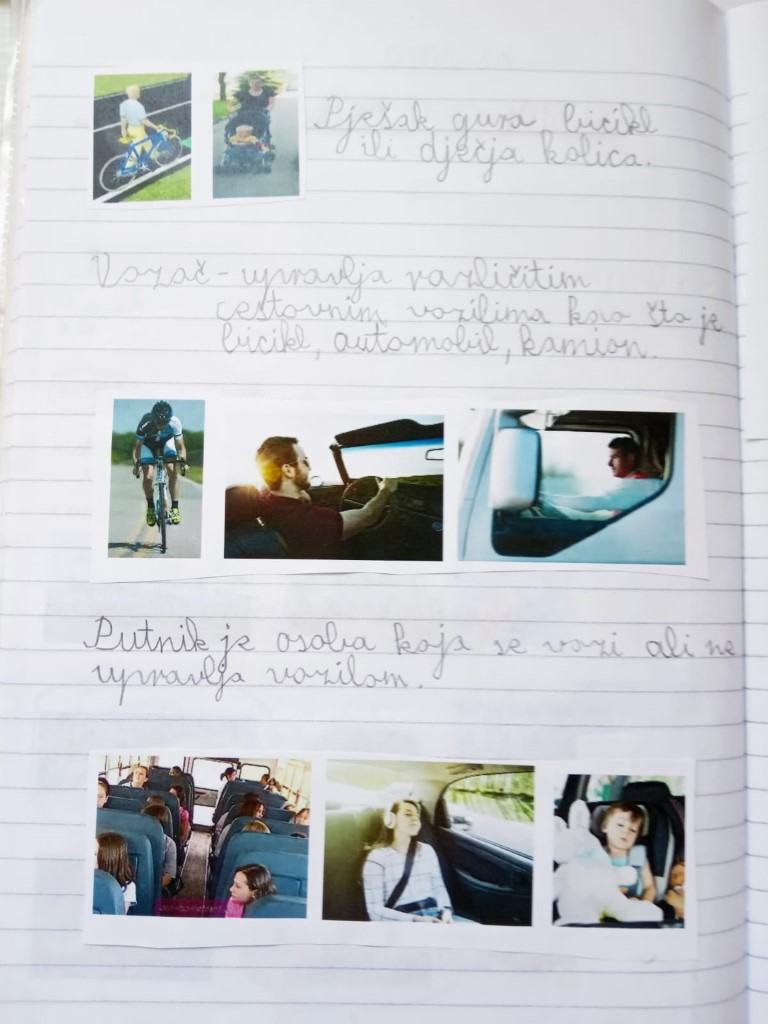 Pješak gura bicikl
ili dječja kolica.
Vozač - upravlja različitim
cestovnim vozilima kao što je
bicikl, automobil, kamion.
Putnik je osoba koja se vozi ali ne
upravlja vozilom.